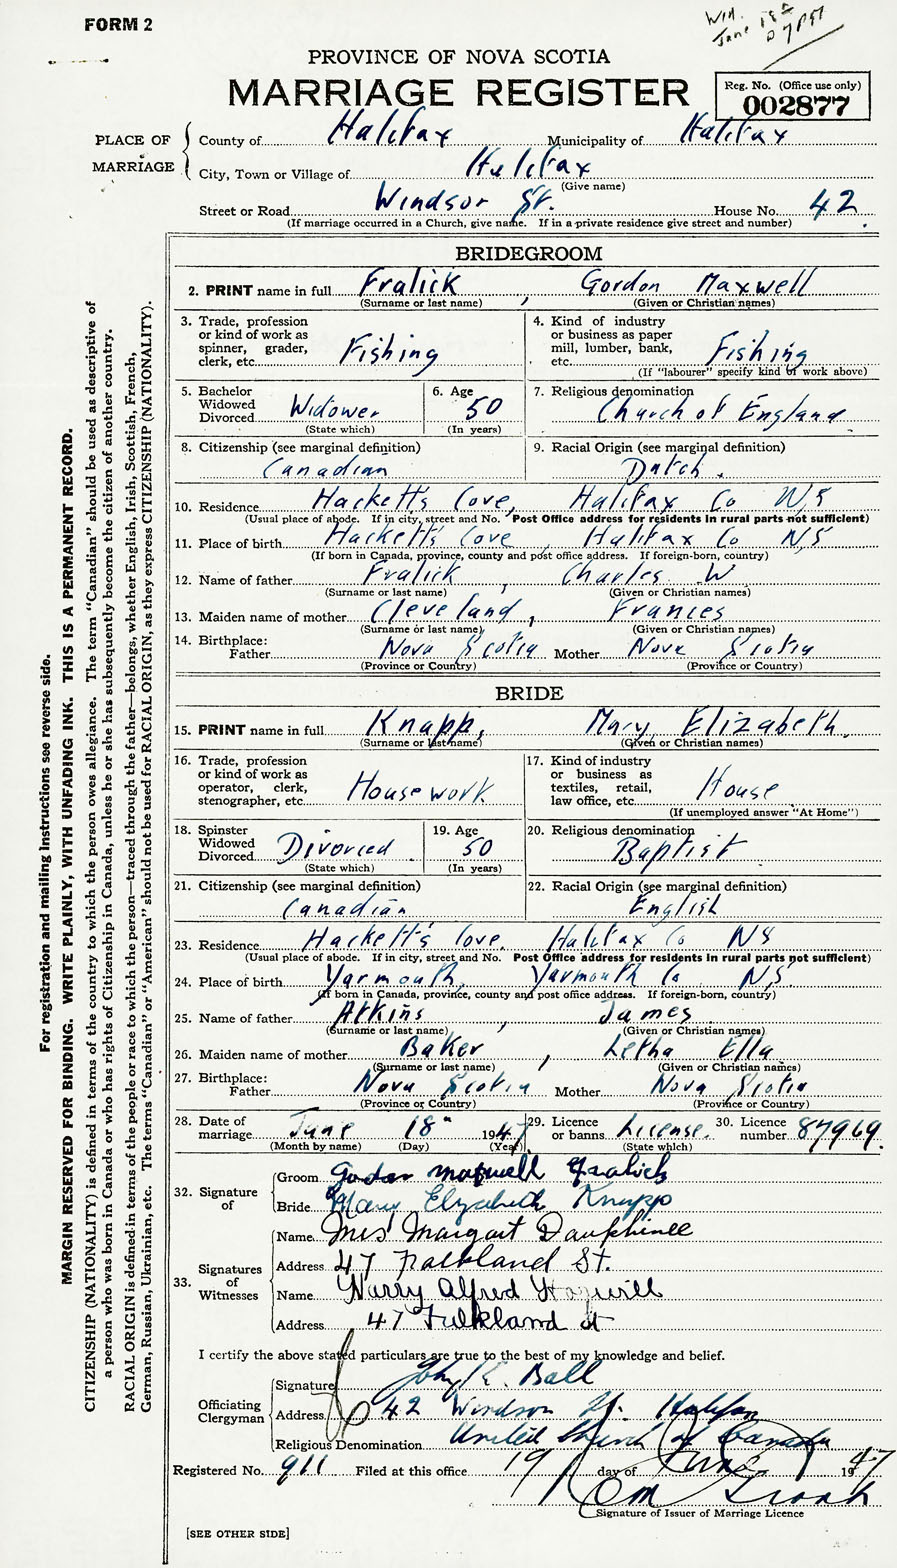 FORM 2
Wm.
June 18
PROVINCE OF NOVA SCOTIA
MARRIAGE REGISTER
Reg. No. (Office use only)
002877
PLACE OF MARRIAGE
County of Halifax Municipality of Halifax
City, Town or Village of Halifax
(Give name)
Street or Road Windsor St. House No. 42
(If marriage occurred in a Church, give name. If in a private residence give street and number)
BRIDEGROOM
2. PRINT name in full Fralick, Gordon Maxwell
(Surname or last name) (Given or Christian names)
3. Trade, profession or kind of work as spinner, grader, clerk, etc. Fishing
4. Kind of industry or business as paper mill, lumber, bank, etc. Fishing
(If "labourer" specify kind of work above)
5. Bachelor Widowed Divorced Widower
(State which)
6. Age 50
(In years)
7. Religious denomination Church of England
8. Citizenship (see marginal definition) Canadian
9. Racial Origin (see marginal definition) Dutch.
10. Residence Hackett's Cove, Halifax Co NS
(Usual place of abode. If in city, street and No. Post Office address for residents in rural parts not sufficient)
11. Place of birth Hackett's Cove, Halifax Co NS
(If born in Canada, province, county and post office address. If foreign-born, country)
12. Name of father Fralick, Charles W
(Surname or last name) (Given or Christian names)
13. Maiden name of mother Cleveland, Frances
(Surname or last name) (Given or Christian names)
14. Birthplace:
Father Nova Scotia Mother Nova Scotia
(Province or Country) (Province or Country)
BRIDE
15. PRINT name in full Knapp, Mary Elizabeth.
(Surname or last name) (Given or Christian names)
16. Trade, profession or kind of work as operator, clerk, stenographer, etc. Housework
17. Kind of industry or business as textiles, retail, law office, etc. House
(If unemployed answer "At Home")
18. Spinster Widowed Divorced Divorced
(State which)
19. Age 50
(In years)
20. Religious denomination Baptist
21. Citizenship (see marginal definition) Canadian
22. Racial Origin (see marginal definition) English
23. Residence Hackett's Cove. Halifax Co NS
(Usual place of abode. If in city, street and No. Post Office address for residents in rural parts not sufficient)
24. Place of birth Yarmouth, Yarmouth Co NS
(If born in Canada, province, county and post office address. If foreign-born, country)
25. Name of father Atkins, James
(Surname or last name) (Given or Christian names)
26. Maiden name of mother Baker, Letha Ella
(Surname or last name) (Given or Christian names)
27. Birthplace:
Father Nova Scotia Mother Nova Scotia
(Province or Country) (Province or Country)
28. Date of marriage June 18 1947
(Month by name) (Day) (Year)
29. Licence or banns License.
(State which)
30. Licence number 87969.
32. Signature of
Groom Gordon Maxwell Fralick
Bride Mary Elizabeth Knapp
33. Signatures of Witnesses
Name Mrs Margart Dauphinee
Address 47 Falkland St.
Name Harry Alfred
Address 47 Falkland St
I certify the above stated particulars are true to the best of my knowledge and belief.
Officiating Clergyman
Signature Ball
Address 42 Windsor St. Halifax
Religious Denomination United Church of Canada
Registered No. 911 Filed at this office 19 day of June 1947
Signature of Issuer of Marriage Licence
[SEE OTHER SIDE]
For registration and mailing instructions see reverse side.
MARGIN RESERVED FOR BINDING. WRITE PLAINLY, WITH UNFADING INK. THIS IS A PERMANENT RECORD.
CITIZENSHIP (NATIONALITY) is defined in terms of the country to which the person owes allegiance. The term "Canadian" should be used as descriptive of
a person who was born in Canada or who has rights of Citizenship in Canada, unless he or she has subsequently become the citizen of another country.
RACIAL ORIGIN is defined in terms of the people or race to which the person—traced through the father—belongs, whether English, Irish, Scottish, French,
German, Russian, Ukrainian, etc. The terms "Canadian" or "American" should not be used for RACIAL ORIGIN, as they express CITIZENSHIP (NATIONALITY).